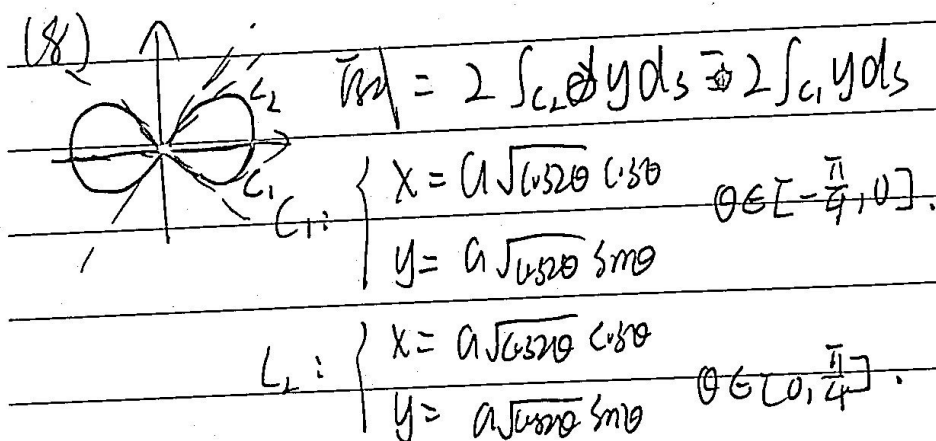 (8)
原式 = 2∫_{C_2} y ds - 2∫_{C_1} y ds
C_2
C_1
C_1: { x = a√(cos2θ) cosθ
y = a√(cos2θ) sinθ θ∈[-π/4, 0].
L_2: { x = a√(cos2θ) cosθ
y = a√(cos2θ) sinθ θ∈[0, π/4].